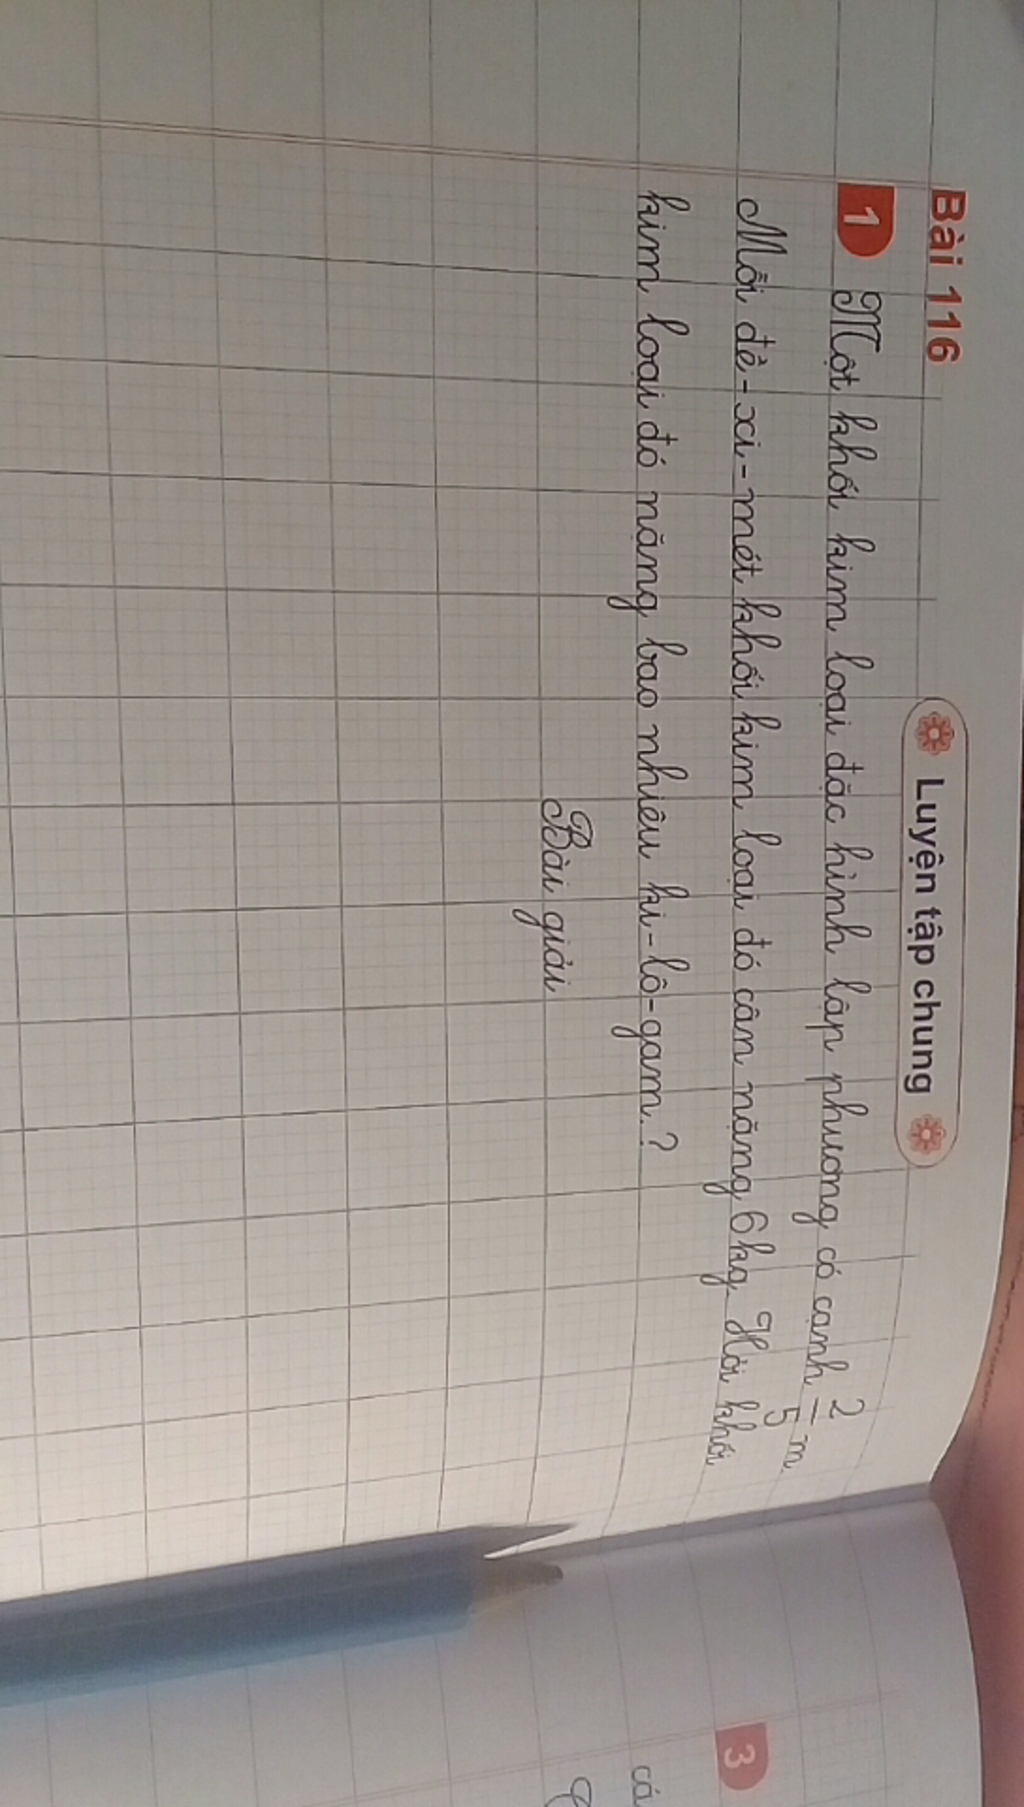 Bài 116
Luyện tập chung
1 Một khối kim loại đặc hình lập phương có cạnh 2/5 m.
Mỗi đề-xi-mét khối kim loại đó cân nặng 6kg. Hỏi khối
kim loại đó nặng bao nhiêu ki-lô-gam?
Bài giải
3